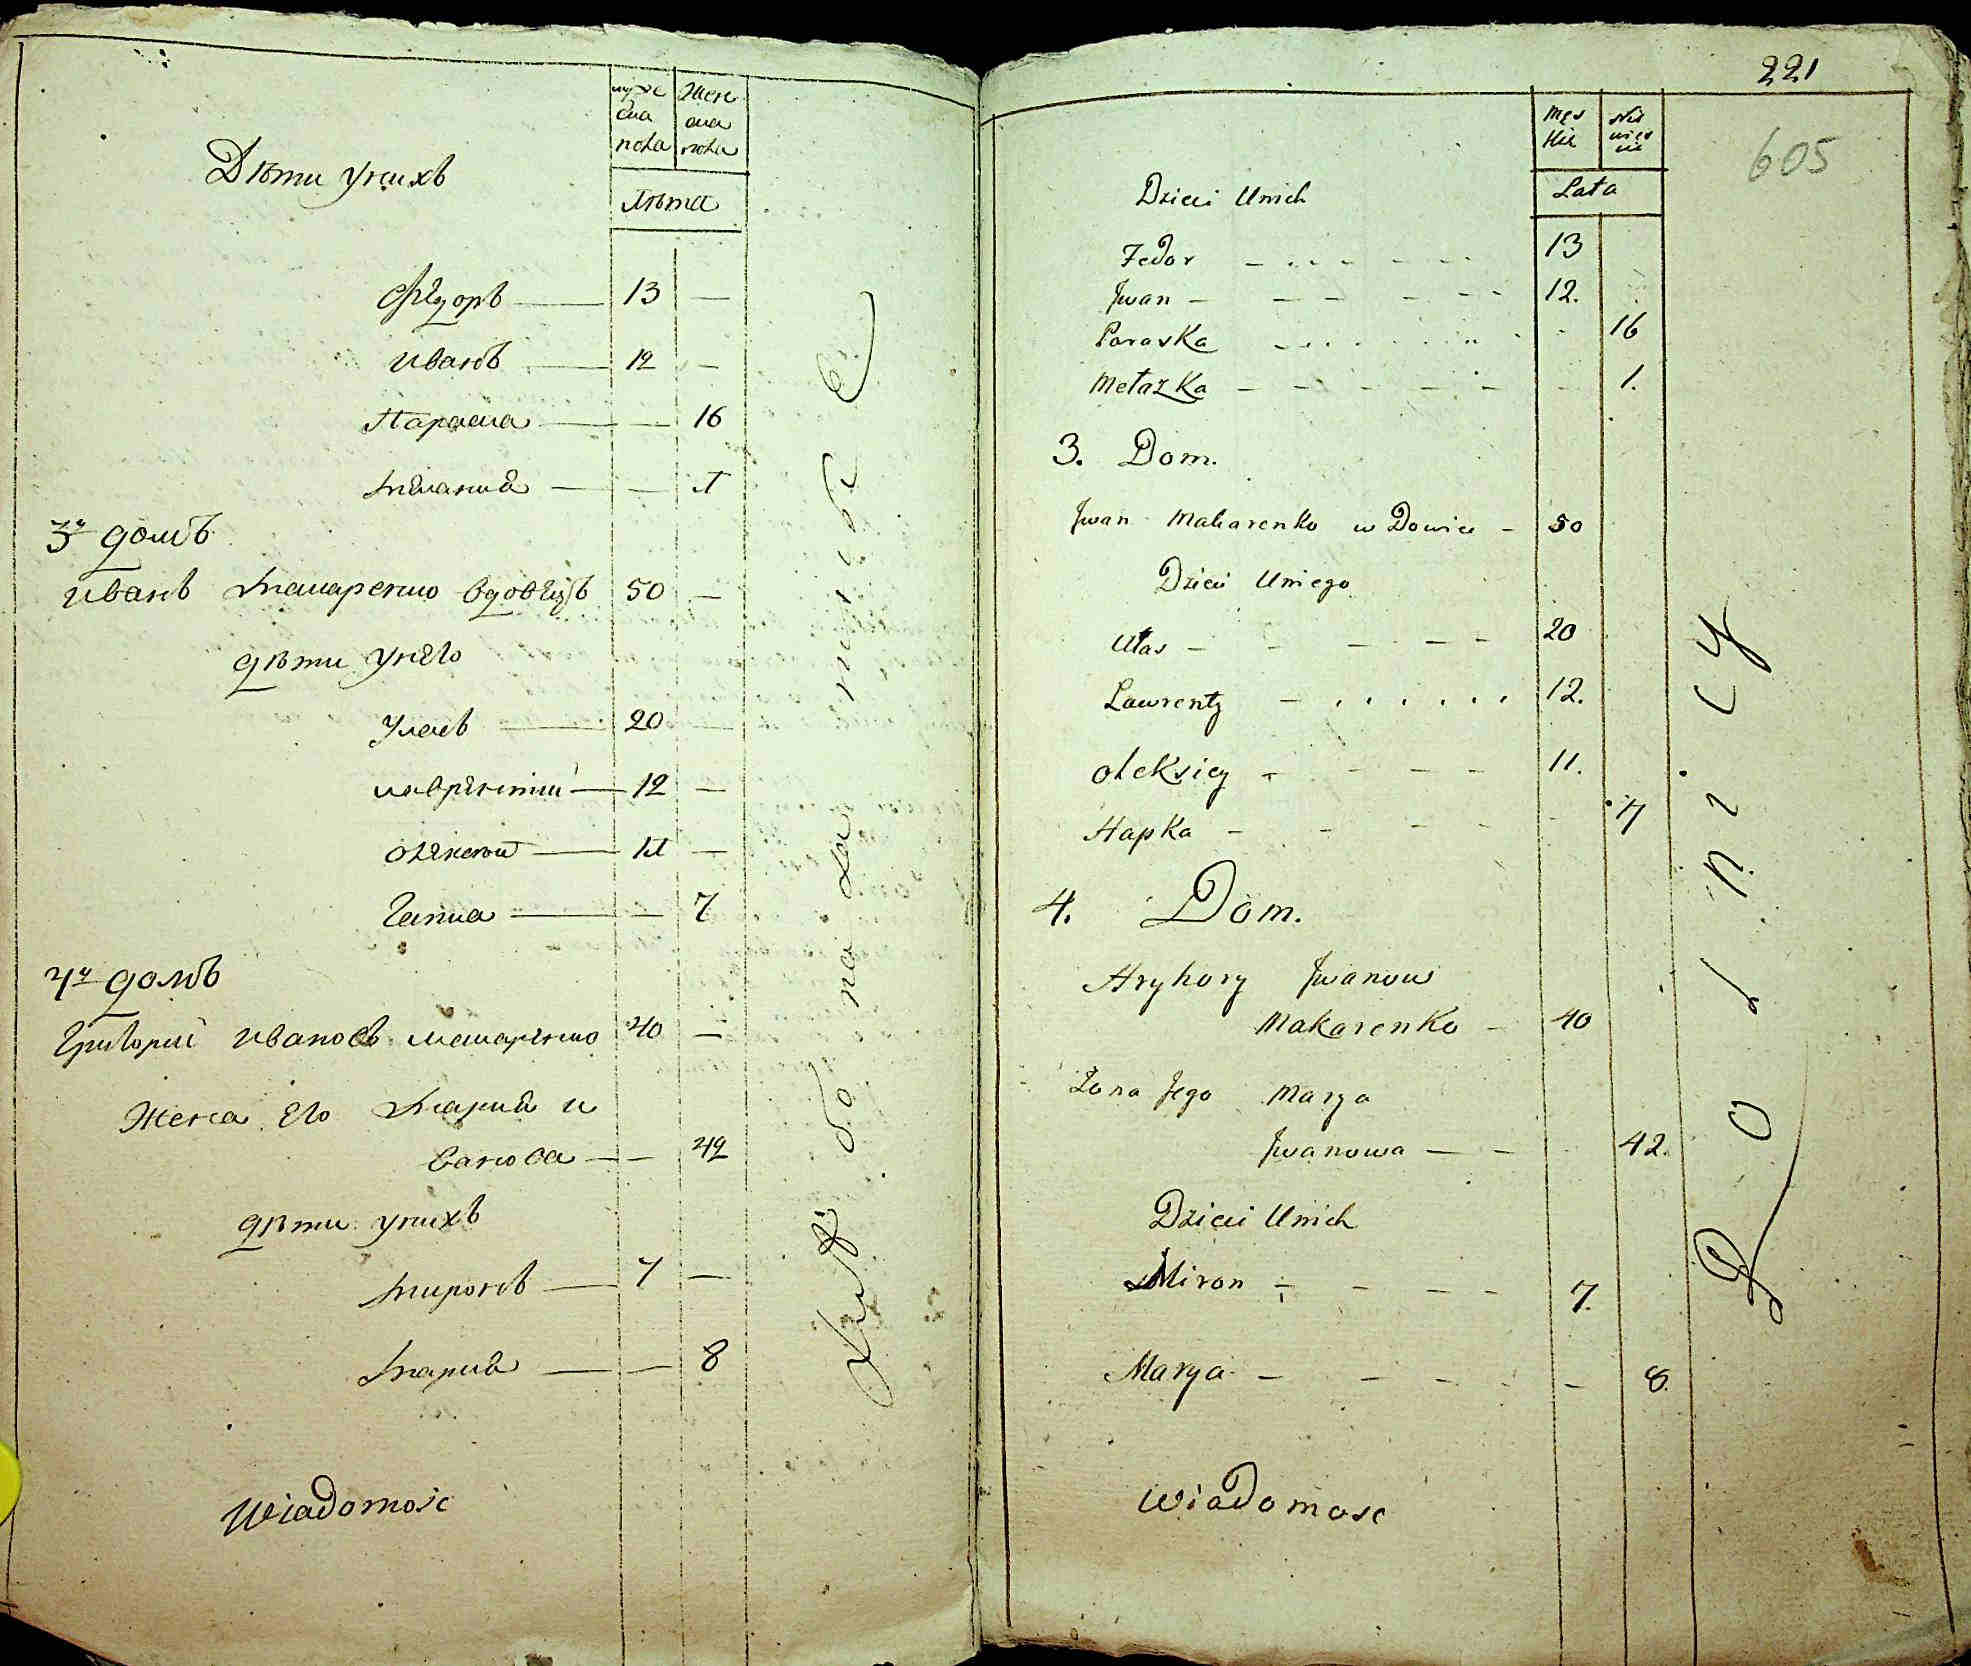 муже
ска
пола
Жен
ска
пола
Дѣти унихъ
лѣта
Фёдоръ 13 —
иванъ 12 —
Параска — 16
мѣланиа — 1
3й домъ
иванъ макаренко вдовецъ 50 —
дѣти унего
уласъ 20 —
лаврентий 12 —
олексий 11 —
Гапка — 7
4й домъ
Григорий ивановъ макаренко 40 —
Жена его мариа и
ванова — 42
дѣти унихъ
миронъ 7 —
мариа — 8
Wiadomosc
221
605
Męs
kie
Nie
wieś
cie
Lata
Dzieci Unich
Fedor 13
Jwan 12.
Paraska 16
Metazka 1.
3. Dom.
Jwan Makarenko w Dowiec 50
Dzieci Uniego
Ułas 20
Lawrenty 12.
oleksiey 11.
Hapka 7
4. Dom.
Hryhory Jwanow
Makarenko 40
Zona Jego Marya
Jwanowa 42.
Dzieci Unich
Miron 7.
Marya 8.
Wiadomosc